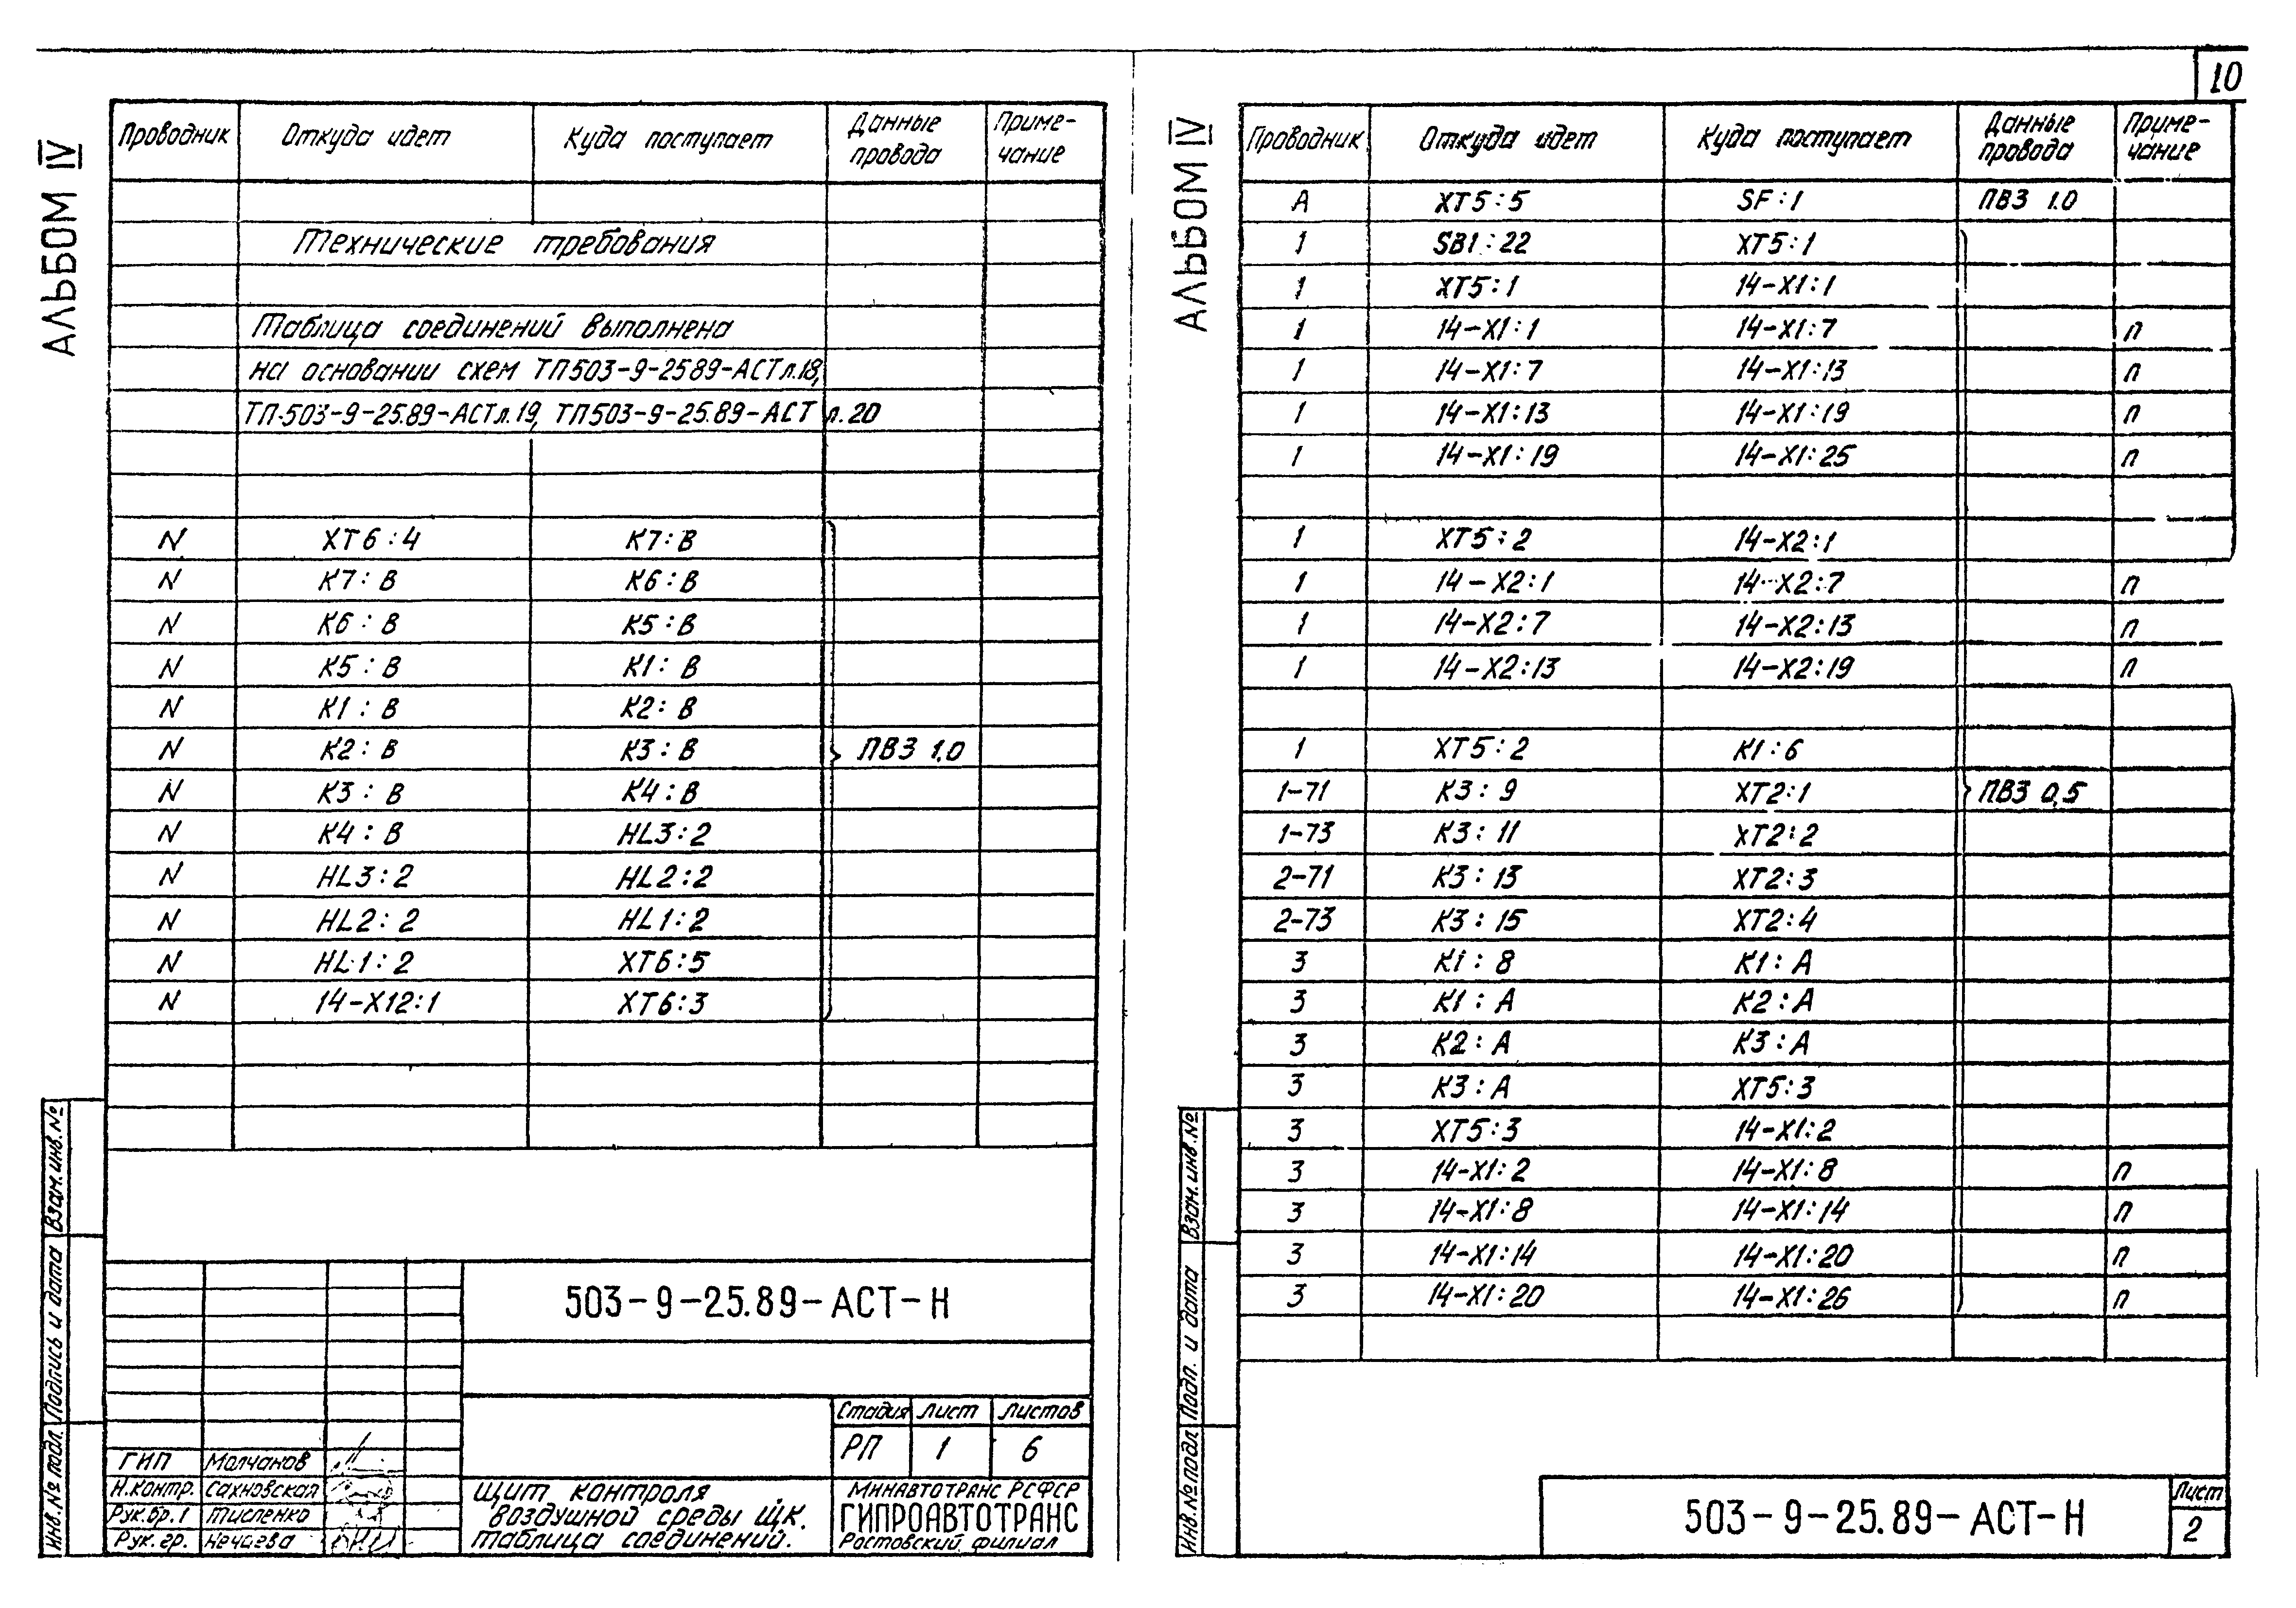 10
АЛЬБОМ IV
Проводник Откуда идет Куда поступает Данные провода Приме-чание
Технические требования
Таблица соединений выполнена
на основании схем ТП503-9-25.89-АСТ л.18,
ТП503-9-25.89-АСТ л.19, ТП503-9-25.89-АСТ л.20
N ХТ6:4 К7:В
N К7:В К6:В
N К6:В К5:В
N К5:В К1:В
N К1:В К2:В
N К2:В К3:В ПВ3 1,0
N К3:В К4:В
N К4:В HL3:2
N HL3:2 HL2:2
N HL2:2 HL1:2
N HL1:2 ХТ6:5
N 14-Х12:1 ХТ6:3
Инв.№ подл. Подпись и дата Взам.инв.№
503-9-25.89-АСТ-Н
Стадия Лист Листов
РП 1 6
ГИП Молчанов
Н.контр. Сахновская
Рук.бр.1 Тисленко
Рук.гр. Нечаева
Щит контроля
воздушной среды ЩК.
Таблица соединений.
МИНАВТОТРАНС РСФСР
ГИПРОАВТОТРАНС
Ростовский филиал
АЛЬБОМ IV
Проводник Откуда идет Куда поступает Данные провода Приме-чание
А ХТ5:5 SF:1 ПВ3 1.0
1 SB1:22 ХТ5:1
1 ХТ5:1 14-Х1:1
1 14-Х1:1 14-Х1:7 п
1 14-Х1:7 14-Х1:13 п
1 14-Х1:13 14-Х1:19 п
1 14-Х1:19 14-Х1:25 п
1 ХТ5:2 14-Х2:1
1 14-Х2:1 14-Х2:7 п
1 14-Х2:7 14-Х2:13 п
1 14-Х2:13 14-Х2:19 п
1 ХТ5:2 К1:6
1-71 К3:9 ХТ2:1 ПВ3 0,5
1-73 К3:11 ХТ2:2
2-71 К3:13 ХТ2:3
2-73 К3:15 ХТ2:4
3 К1:8 К1:А
3 К1:А К2:А
3 К2:А К3:А
3 К3:А ХТ5:3
3 ХТ5:3 14-Х1:2
3 14-Х1:2 14-Х1:8 п
3 14-Х1:8 14-Х1:14 п
3 14-Х1:14 14-Х1:20 п
3 14-Х1:20 14-Х1:26 п
Инв.№ подл. Подп. и дата Взам.инв.№
503-9-25.89-АСТ-Н
Лист
2